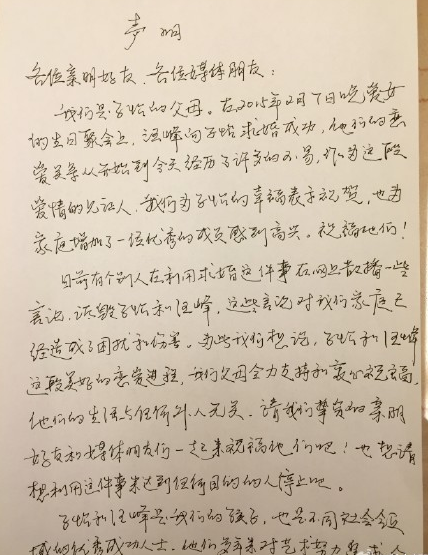 声明
各位亲朋好友、各位媒体朋友：
我们是子怡的父母。在2015年2月7日晚爱女
的生日聚会上，汪峰向子怡求婚成功，他们的恋
爱关系从开始到今天经历了许多的不易，作为这段
爱情的见证人，我们为子怡的幸福表示祝贺，也为
家庭增加了一位优秀的成员感到高兴。祝福他们！
目前有个别人在利用求婚这件事在网上散播一些
言论，诋毁子怡和汪峰，这些言论对我们家庭已
经造成了困扰和伤害。为此我们想说，子怡和汪峰
这段美好的恋爱进程，我们父母全力支持和衷心祝福，
他们的生活与任何外人无关。请我们挚爱的亲朋
好友和媒体朋友们一起来祝福他们吧！也想请
想利用这件事来达到任何目的的人停止吧。
子怡和汪峰是我们的孩子，也是不同社会领
域的优秀成功人士。他们多年来对艺术努力